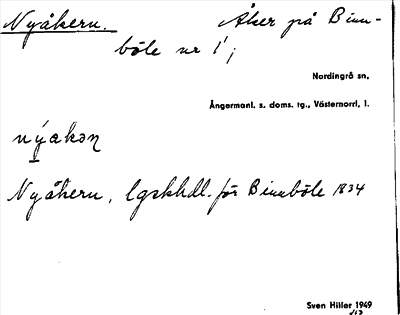 Nyåkern. Åker på Binn-
böle nr 1;
Nordingrå sn,
Ångermanl. s. doms. tg., Västernorrl. l.
nýakən
Nyåkern, lgskhdl. för Binnböle 1834
Sven Hiller 1949